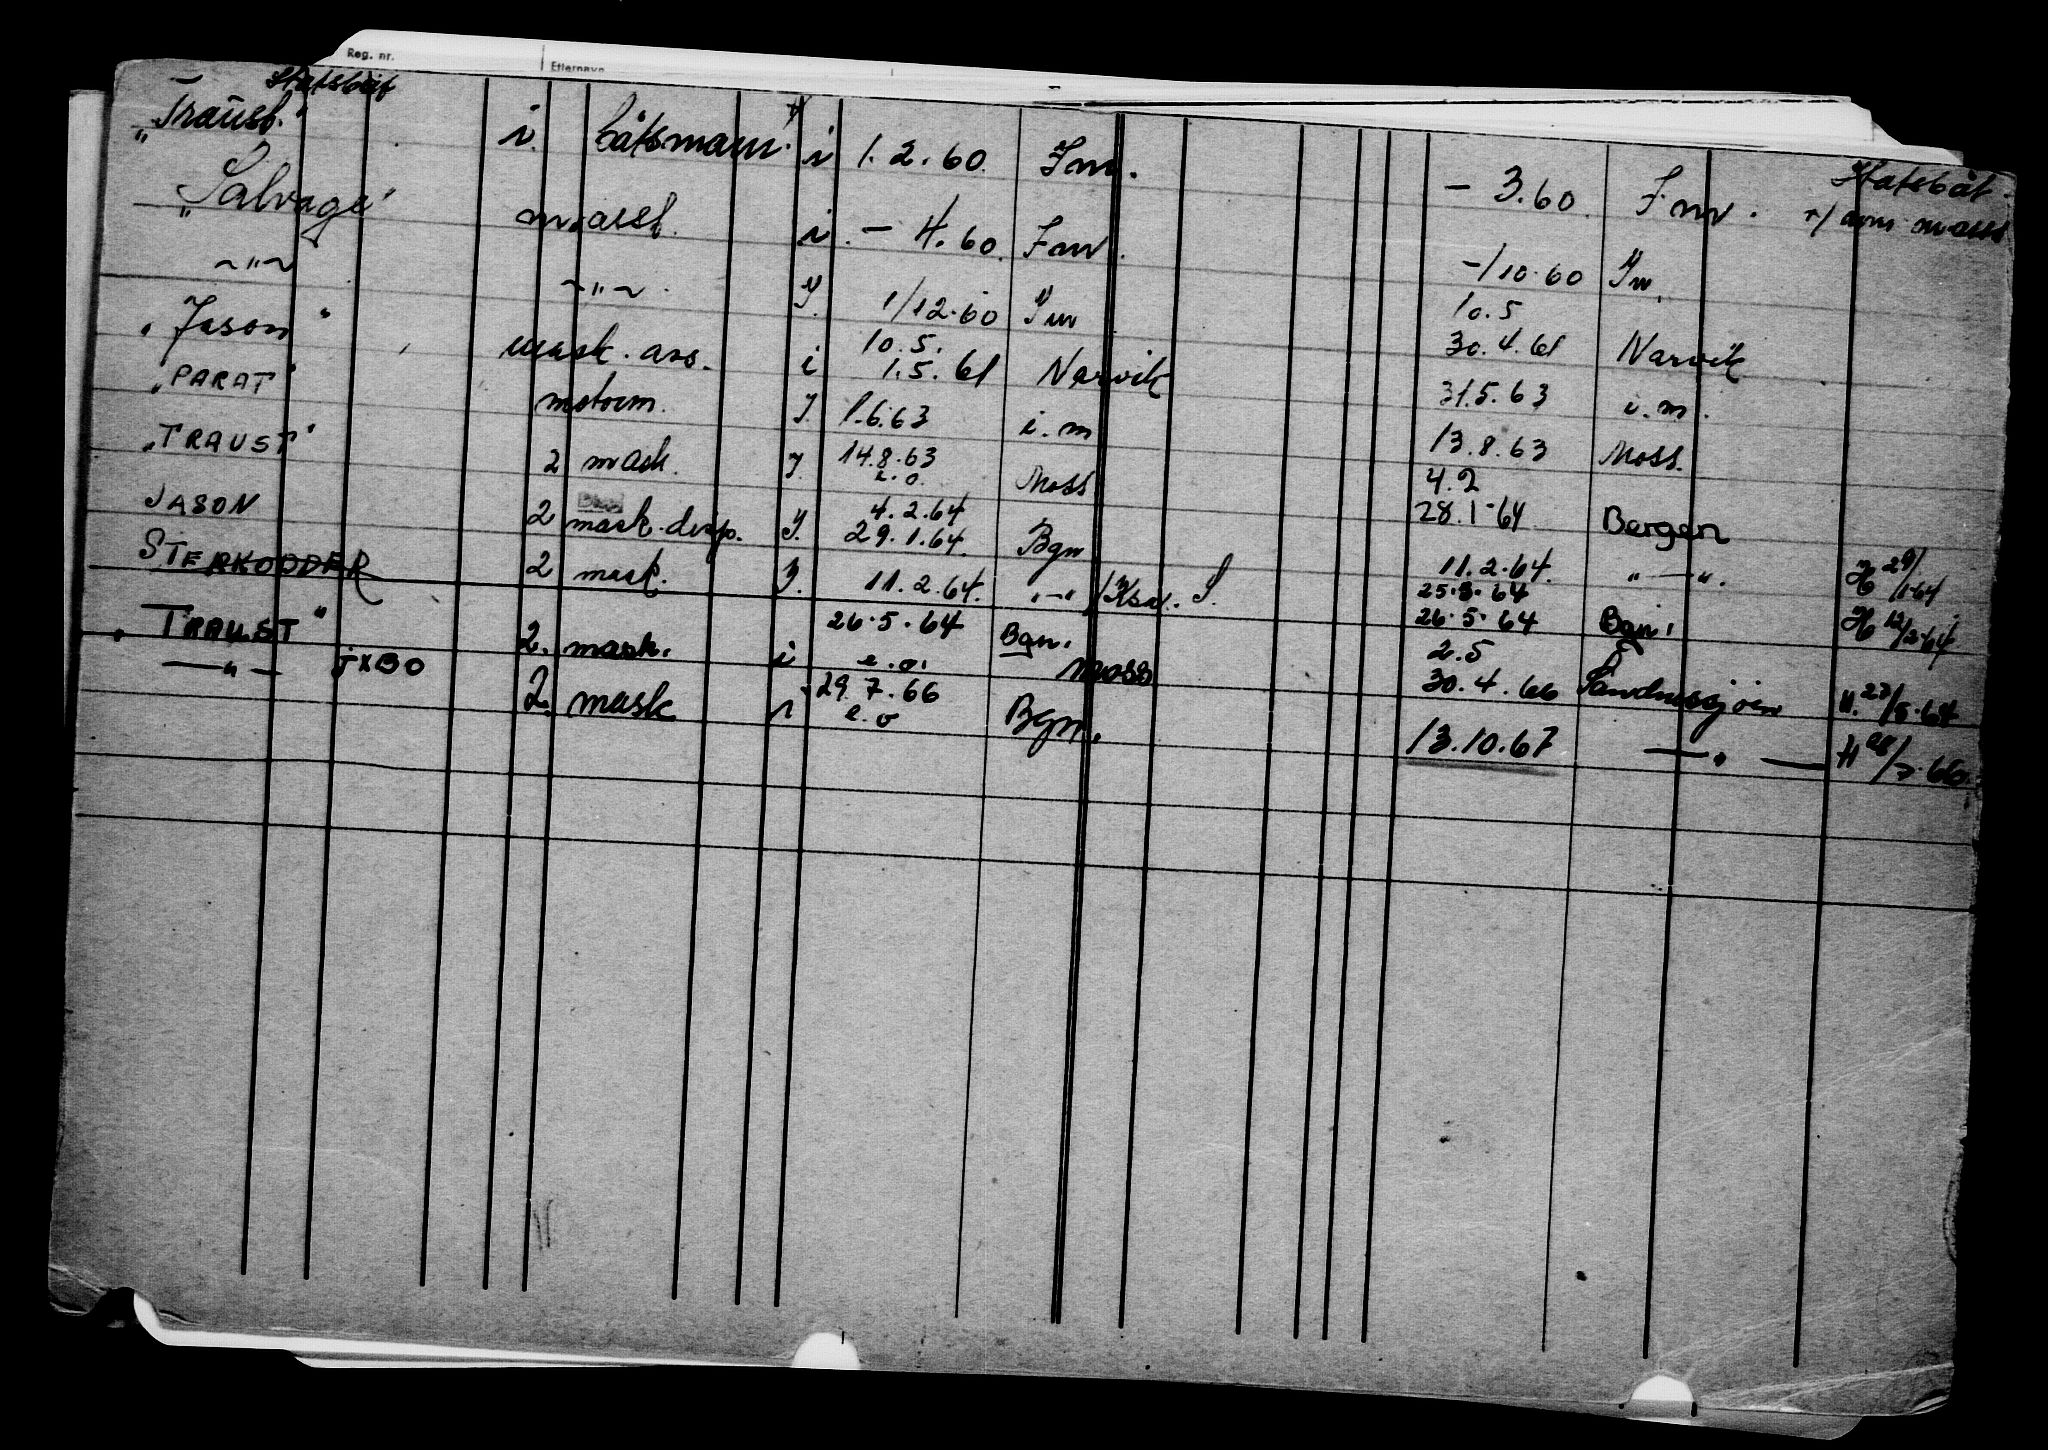 Reg. nr. Etternavn
Statsbåt
"Traust." i. båtsmann. i 1.2.60. Inn. - 3.60. Inn. Statsbåt.
+/ som m.ass
"Salvage" m.asst. i. - 4.60. Inn. -/10.60 Inn.
~"~ ~"~. Y. 1/12.60 Inn 10.5
30.4.61 Narvik
"Jason" mask. ass. i 10.5.
1.5.61 Narvik 31.5.63 i.m.
"PARAT" motorm. Y. 1.6.63 i.m 13.8.63 Moss.
"TRAUST" 2 mask. Y. 14.8.63
e.o. Moss 4.2
28.1.64 Bergen
JASON 2 mask. disp. Y. 4.2.64
29.1.64. Bgn 11.2.64. "—". H 29/1-64
STERKODDER 2 mask. Y. 11.2.64. "-" /Ksu. S. 25.3.64
26.5.64 Bgn. H 12/2-64
"TRAUST" 2. mask. i 26.5.64
e.o. Bgn.
Moss 2.5
30.4.66 Sandnessjøen H. 27/5.64
—"— JXBO 2. mask i 29.7.66
e.o Bgn. 13.10.67 —"— H 28/7.66.